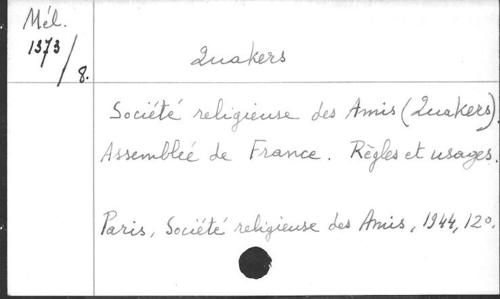 Mél.
1373/8.
Quakers
Société religieuse des Amis (Quakers).
Assemblée de France. Règles et usages.
Paris, Société religieuse des Amis, 1944, 12º.